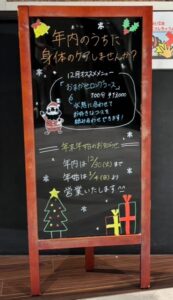 年内のうちに
身体のケアしませんか?
12月オススメメニュー
「おまかせロングコース」
100分 ¥
状態に合わせて
お好きなコースを
組み合わせできます!
年末年始のお知らせ
年内は 12/30(火)まで
年始は 1/4(日)より
営業いたします^^